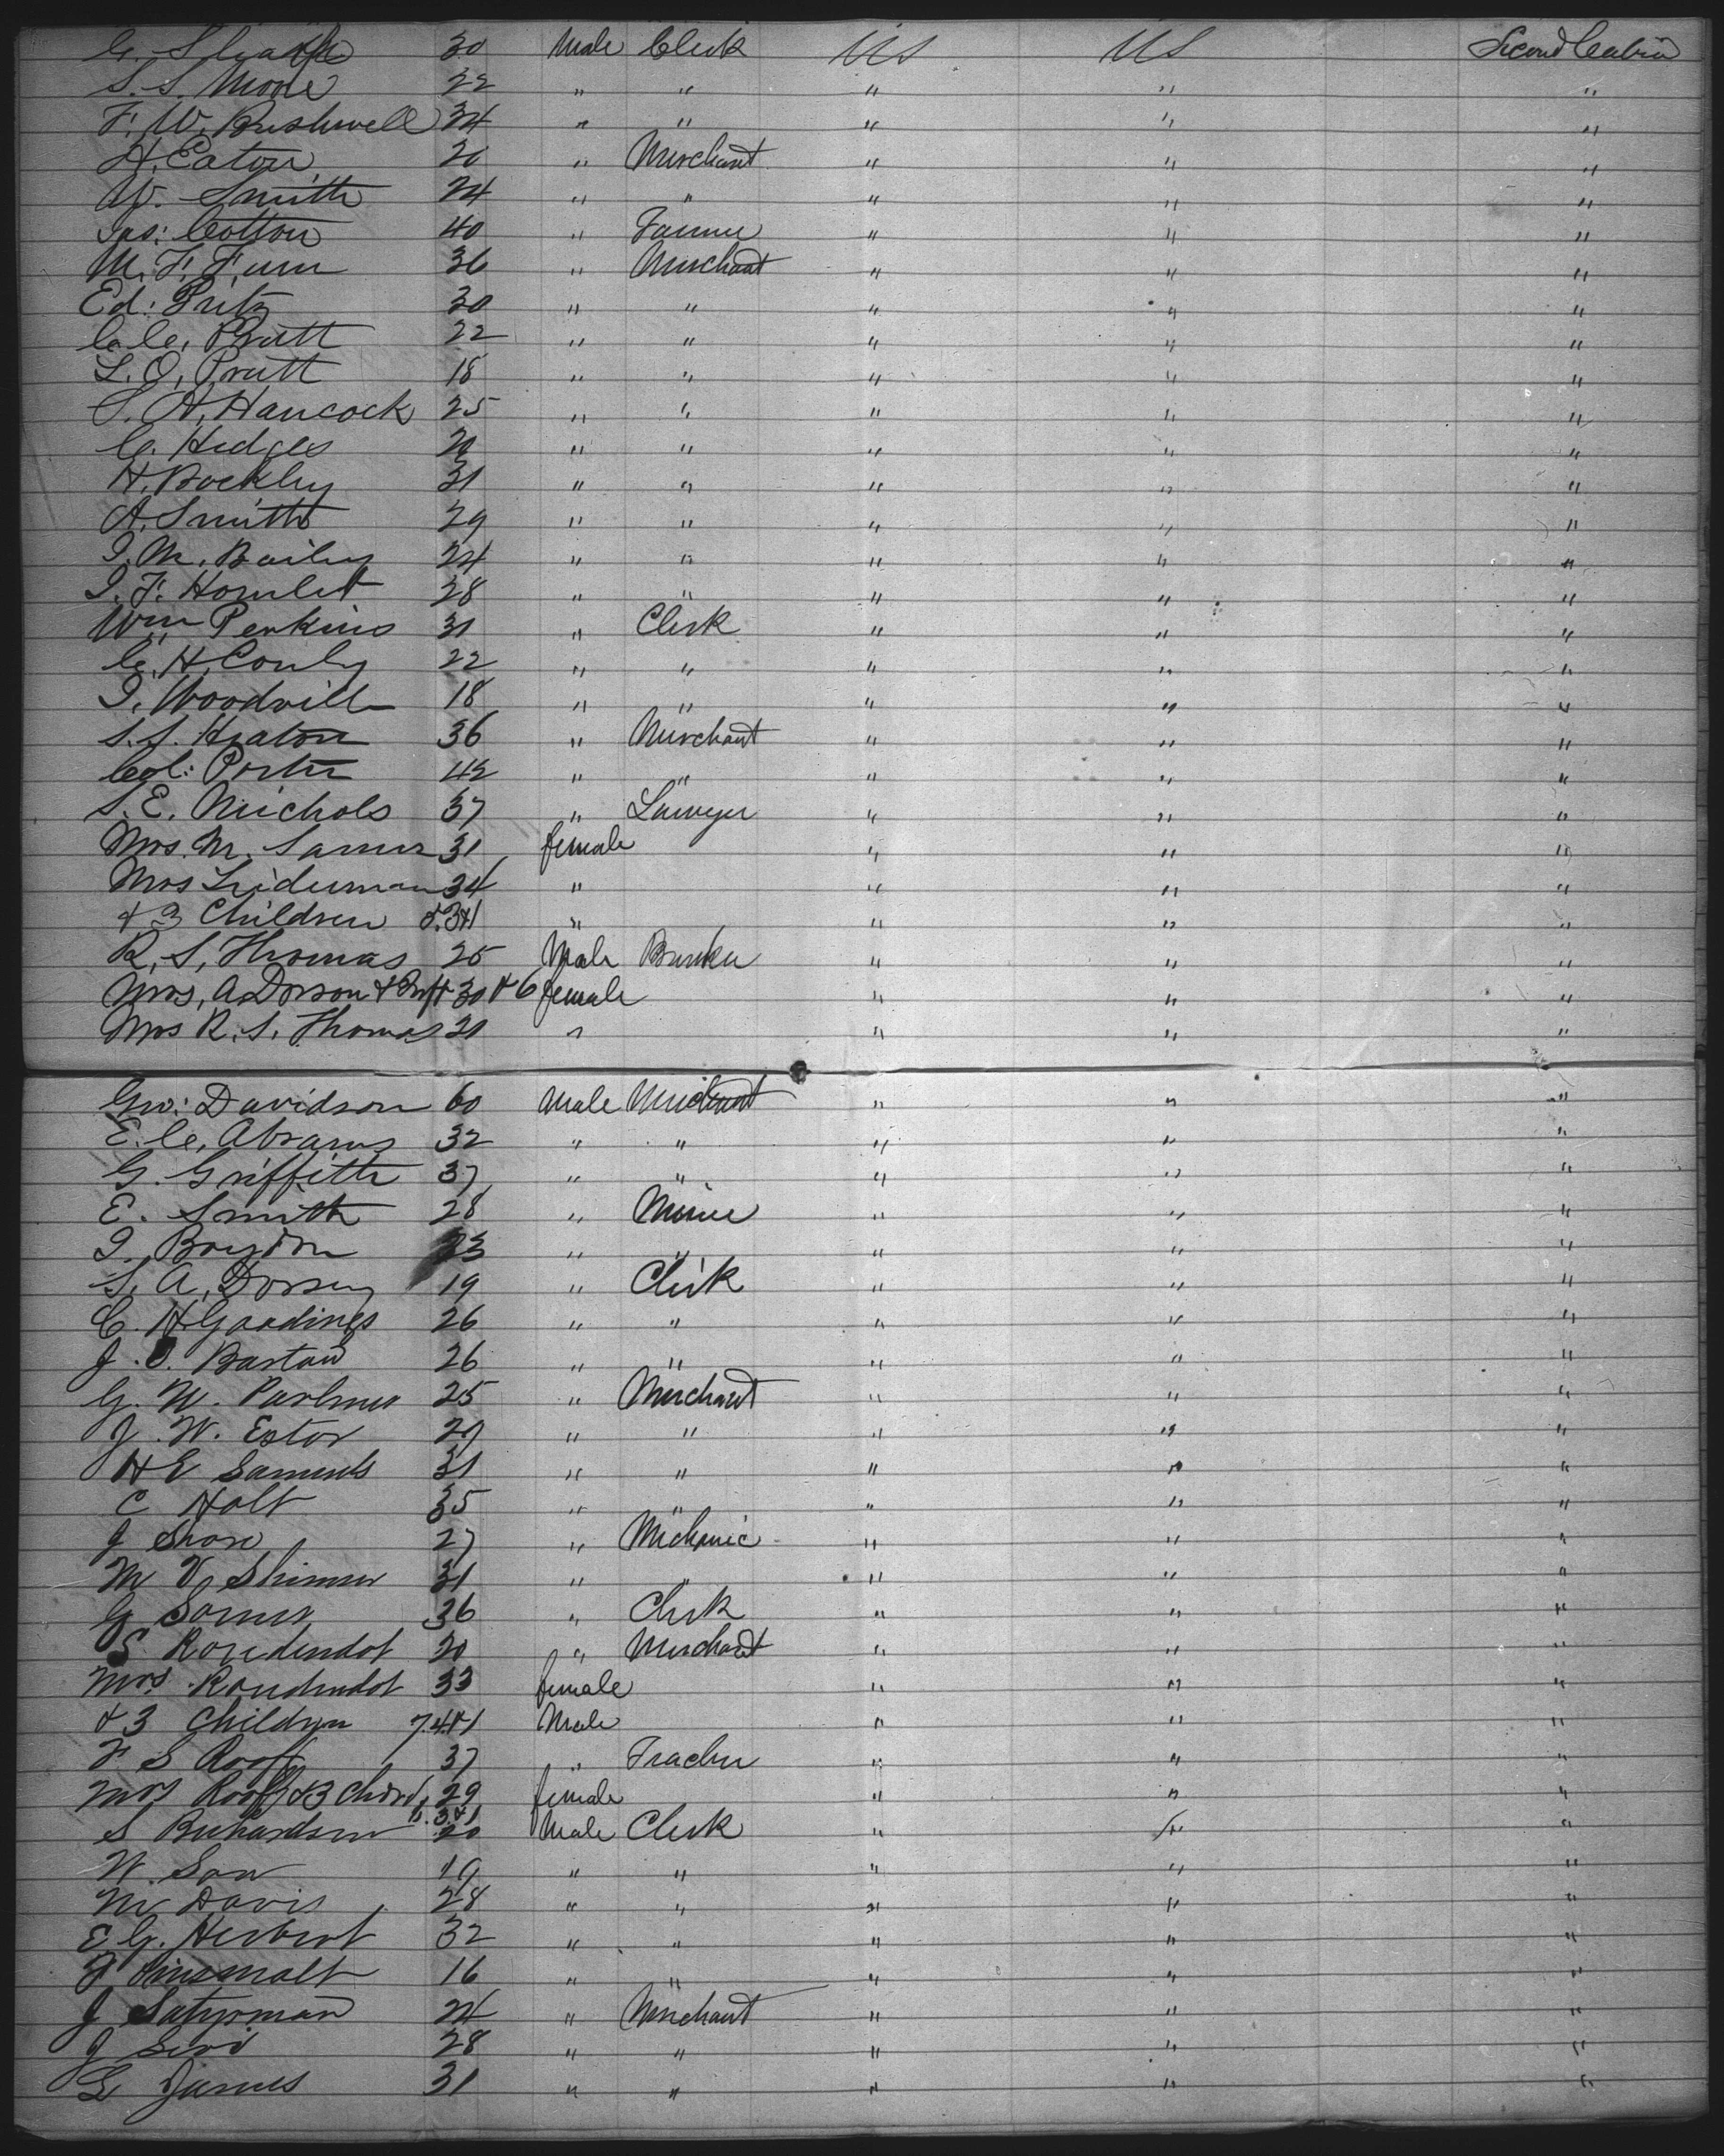 C. Sharpe 30 Male Clerk US US Second Cabin
S. S. Moore 22 " " " " "
F. W. Bushwell 34 " " " " "
H. Eaton 26 " Merchant " " "
W. Smith 24 " " " " "
Jas: Cotton 40 " Farmer " " "
M. F. Funn 36 " Merchant " " "
Ed: Fritz 30 " " " " "
C. C. Pratt 22 " " " " "
L. O. Pratt 18 " " " " "
S. A. Hancock 25 " " " " "
C. Hedges 20 " " " " "
H. Bockley 31 " " " " "
A. Smith 29 " " " " "
I. M. Bailey 24 " " " " "
I. F. Homlet 28 " " " " "
Wm Perkins 31 " Clerk " " "
C. H. Conly 22 " " " " "
I. Woodvill 18 " " " " "
S. S. Heaton 36 " Merchant " " "
Col: Porter 42 " " " " "
S. E. Nuichols 37 " Lawyer " " "
Mrs. M. Sarner 31 female " " "
Mrs Liderman 34 " " " "
& 3 Children 5.3&1 " " " "
R. S. Thomas 25 Male Banker " " "
Mrs. A Dorson & Inft 30 & 6 female " " "
Mrs R. S. Thomas 20 " " " "
Geo: Davidson 60 Male Merchant " " "
E. C. Abrams 32 " " " " "
G. Griffith 37 " " " " "
E. Smith 28 " Miner " " "
I. Boydon 23 " " " " "
S. A. Dorsey 19 " Clerk " " "
C. H Goodings 26 " " " " "
J. O. Barton 26 " " " " "
G. W. Parlmer 25 " Merchant " " "
J. W. Estor 29 " " " " "
H E Samuels 31 " " " " "
C Holt 35 " " " " "
J Shore 27 " Mechanic " " "
M V Shimer 31 " " " " "
G Somer 36 " Clerk " " "
S Roudendot 20 " Merchant " " "
Mrs. Roudendot 33 female " " "
& 3 Children 7.4&1 Male " " "
F S Rooff 37 " Teacher " " "
Mrs Rooff & 3 Child. 29 female " " "
S Richardson 20 Male Clerk " " "
W. Son 19 " " " " "
M Davis 28 " " " " "
E G. Herbert 32 " " " " "
16 " " " " "
J Satyrman 24 " Merchant " " "
J 28 " " " " "
G James 31 " " " " "